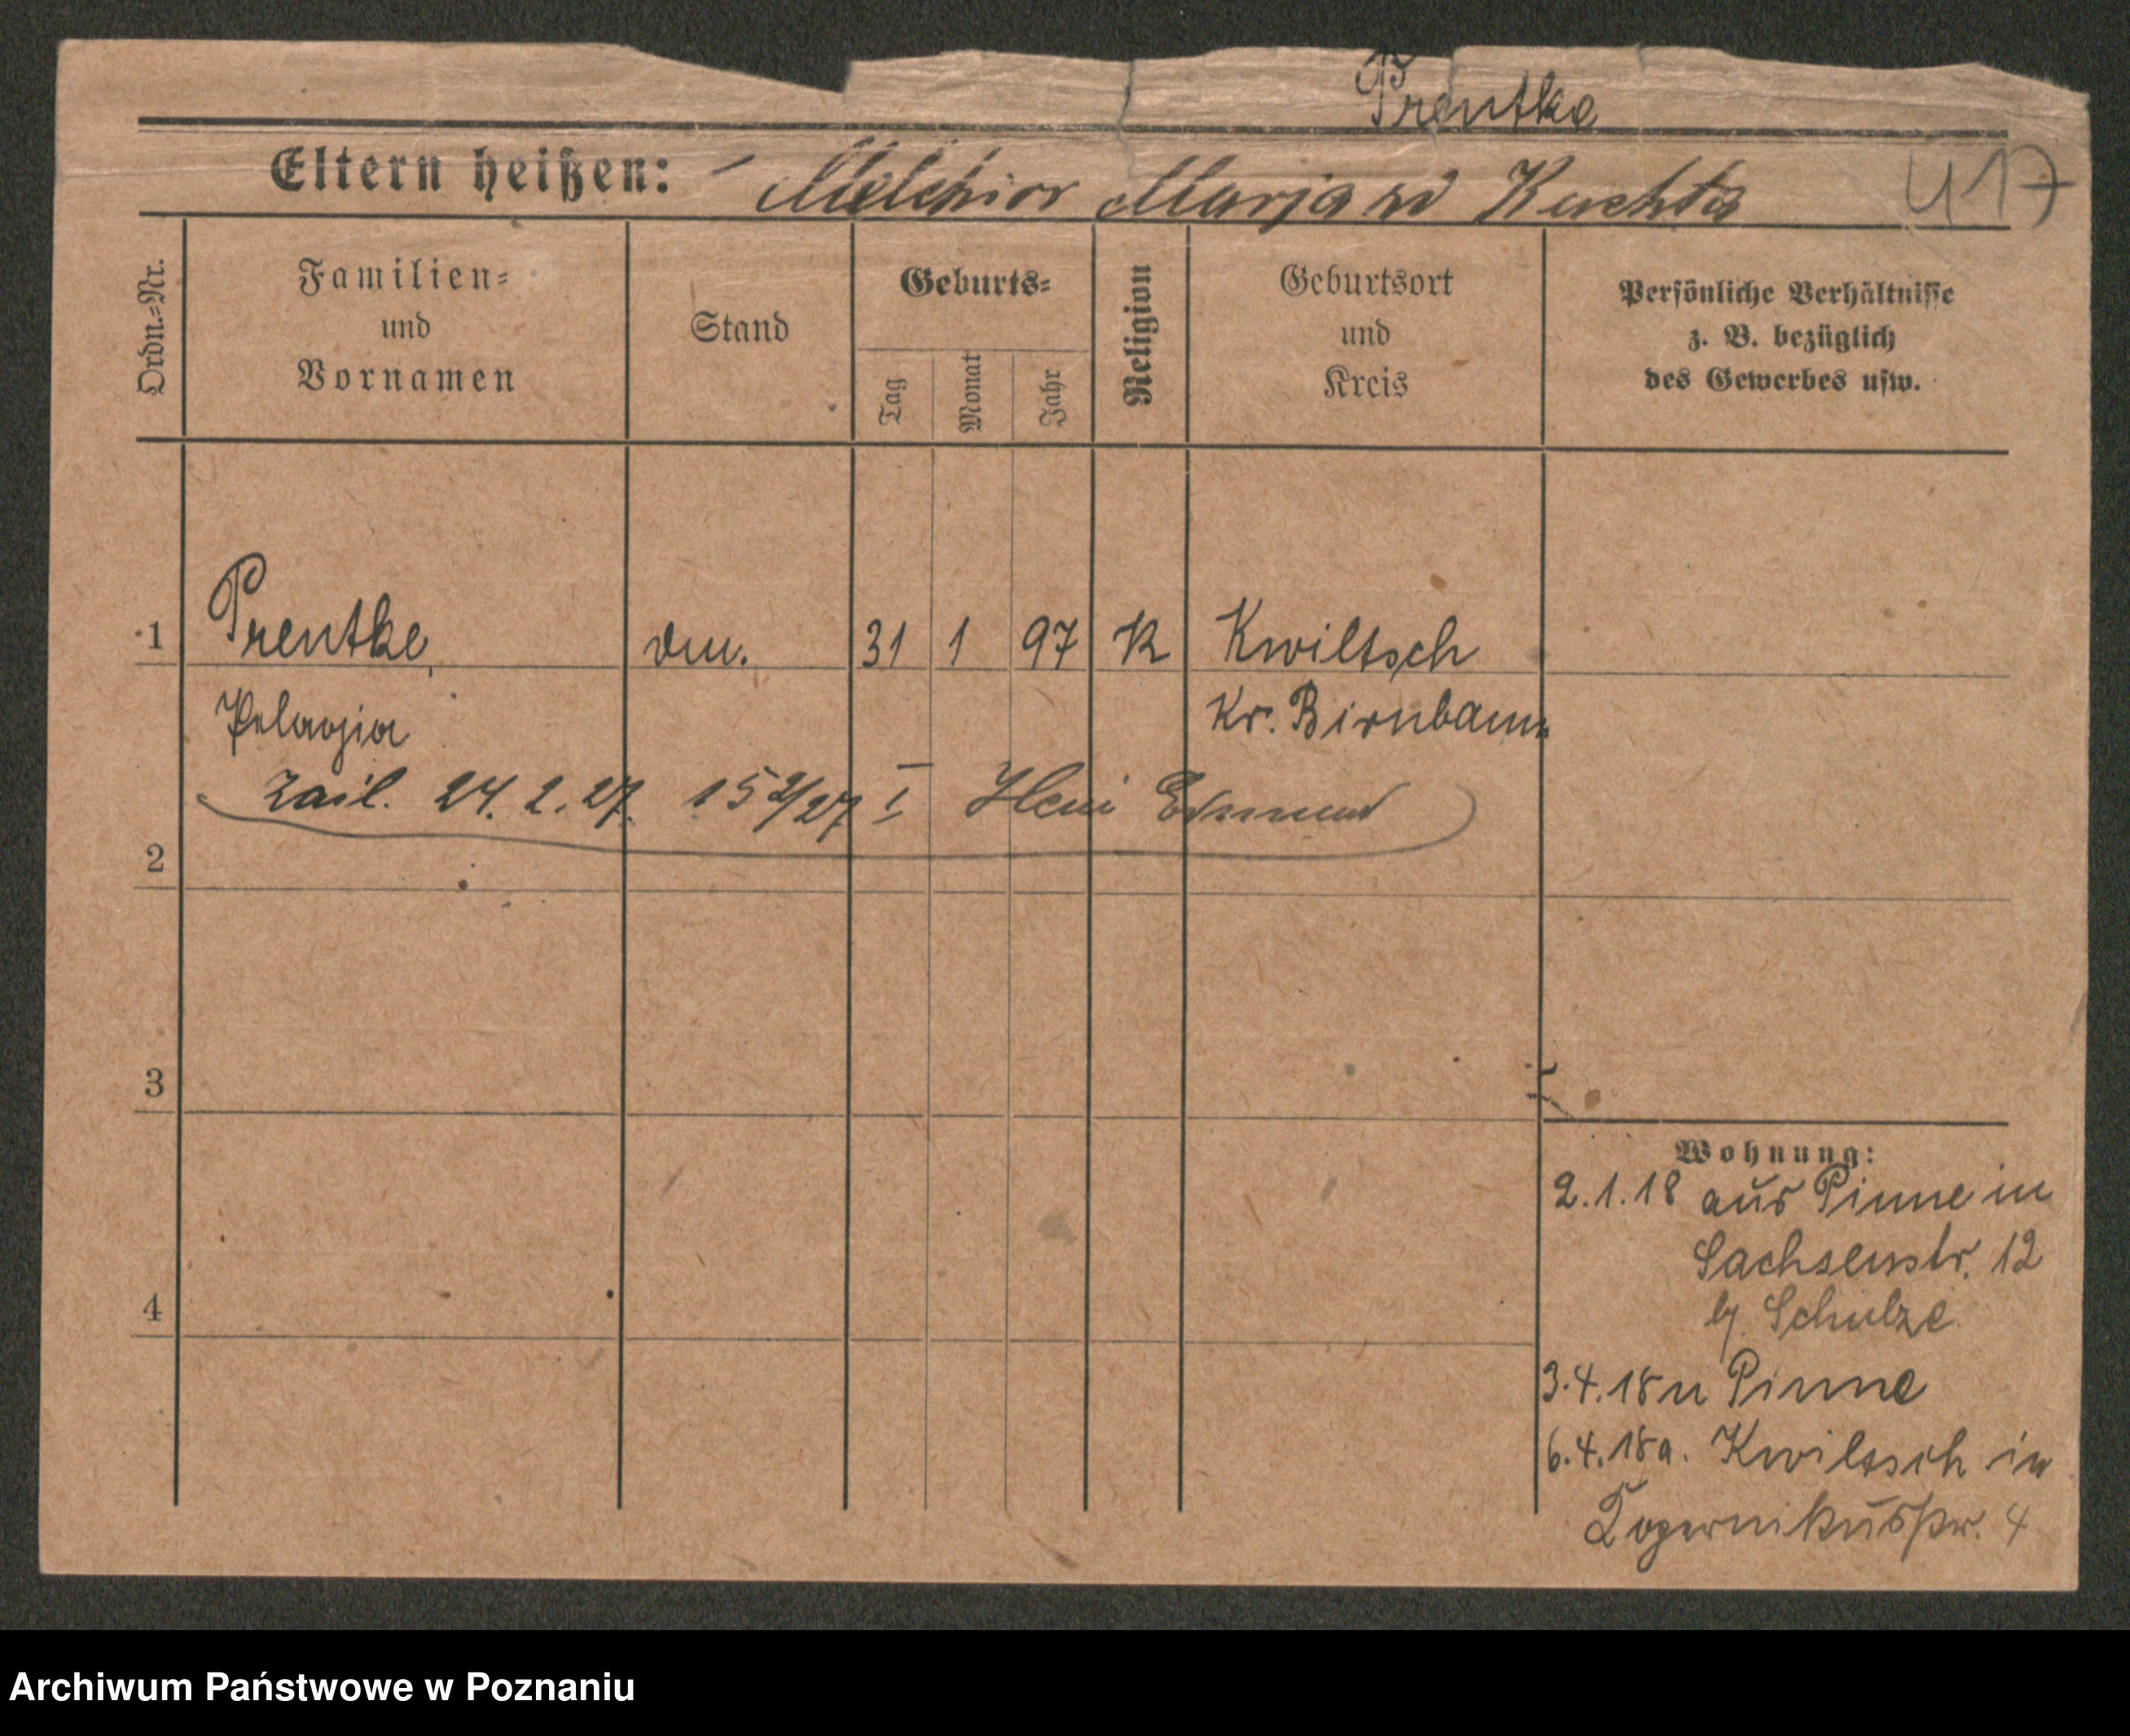 Prentke
Eltern heißen: Melchior Marja zd Kuchta
417
Ordn.-Nr.
Familien-
und
Vornamen
Stand
Geburts-
Tag
Monat
Jahr
Religion
Geburtsort
und
Kreis
Persönliche Verhältnisse
z. B. bezüglich
des Gewerbes usw.
1 Prentke, 31 1 97 K Kwiltsch
Pelagia Kr. Birnbaum
24.2.27. 152/27 I Edmund
2
3
4
Wohnung:
2.1.18 aus Pinne in
Sachsenstr. 12
b/ Schulze
3.4.18 n Pinne
6.4.18 a. Kwiltsch in
Kopernikusstr. 4
Archiwum Państwowe w Poznaniu